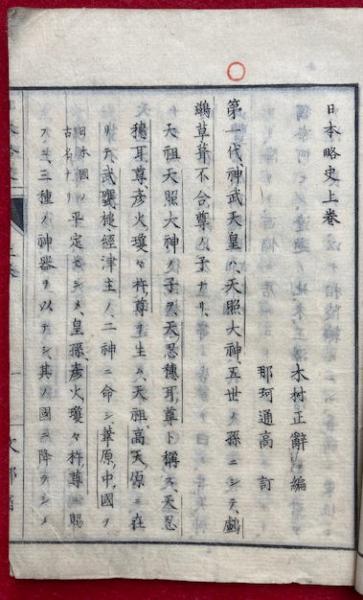 日本略史上卷
木村正辭 編
那珂通高 訂
第一代、神武天皇ハ、天照大神、五世ノ孫ニシテ、鸕
鷀草葺不合尊ノ子ナリ、
天祖天照大神ノ子ヲ、天忍穗耳尊ト稱ス、天忍
穗耳尊、彦火瓊々杵尊ヲ生ム、天祖、高天原ニ在
リテ、武甕槌、經津主ノ、二神ニ命シ、葦原ノ中國ヲ
日本國ノ
古名ナリ
平定セシメ、皇孫、彦火瓊々杵尊ニ賜
フニ、三種ノ神器ヲ以テシ、其ノ國ニ降ラシメ